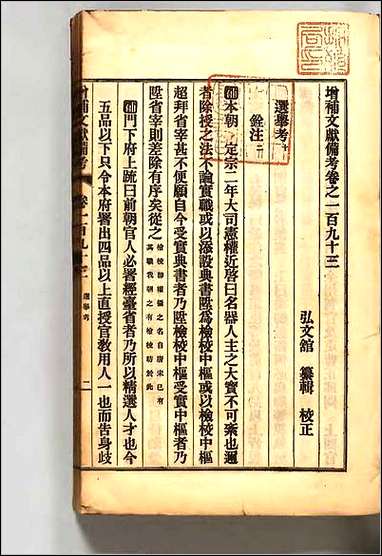 增補文獻備考卷之一百九十三
弘文館 纂輯 校正
選擧考十
銓注二
補本朝 定宗二年大司憲權近啓曰名器人主之大寶不可紊也邇
者除授之法不論實職或以添設典書陞爲檢校中樞或以檢校中樞
超拜省宰甚不便願自今受實典書者陞檢校中樞受實中樞者乃
陞省宰則差除有序矣從之
檢校師權攝之名自唐宋已有
其職我朝之有檢校昉於此
補門下府上疏曰前朝官人必署經臺省者乃所以精選人才也今
五品以下只令本府署出四品以上直授官敎用人一也而告身歧
增補文獻備考 卷一百九十三 選擧考 二